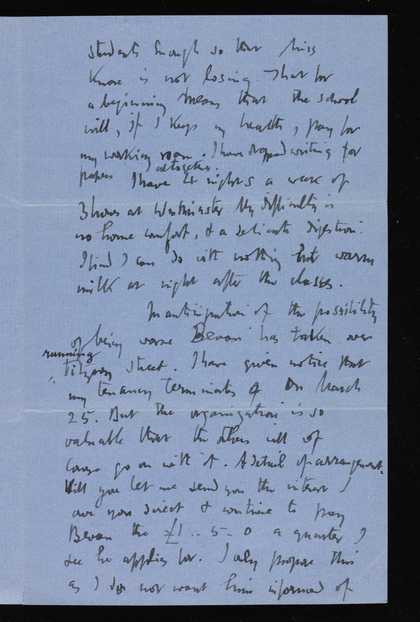 students enough so that Miss
Knox is not losing. That for
a beginning means that the school
will, if I keep my health, pay for
my working room. I have dropped writing for
papers altogether.
I have 2 nights a week of
3 hours at Westminster My difficulty is
no home comfort, & a delicate digestion.
I find I can do with nothing but warm
milk at night after the classes.
In anticipation of the possibility
of being worse Bevan has taken over
running
Fitzroy Street. I have given notice that
my tenancy terminates on March
25. But the organisation is so
valuable that the others will of
course go on with it. A detail of arrangement.
Will you let me send you the interest I
owe you direct & continue to pay
Bevan the £1..5-0 a quarter I
see he applies for. I only propose this
as I do not want him informed of